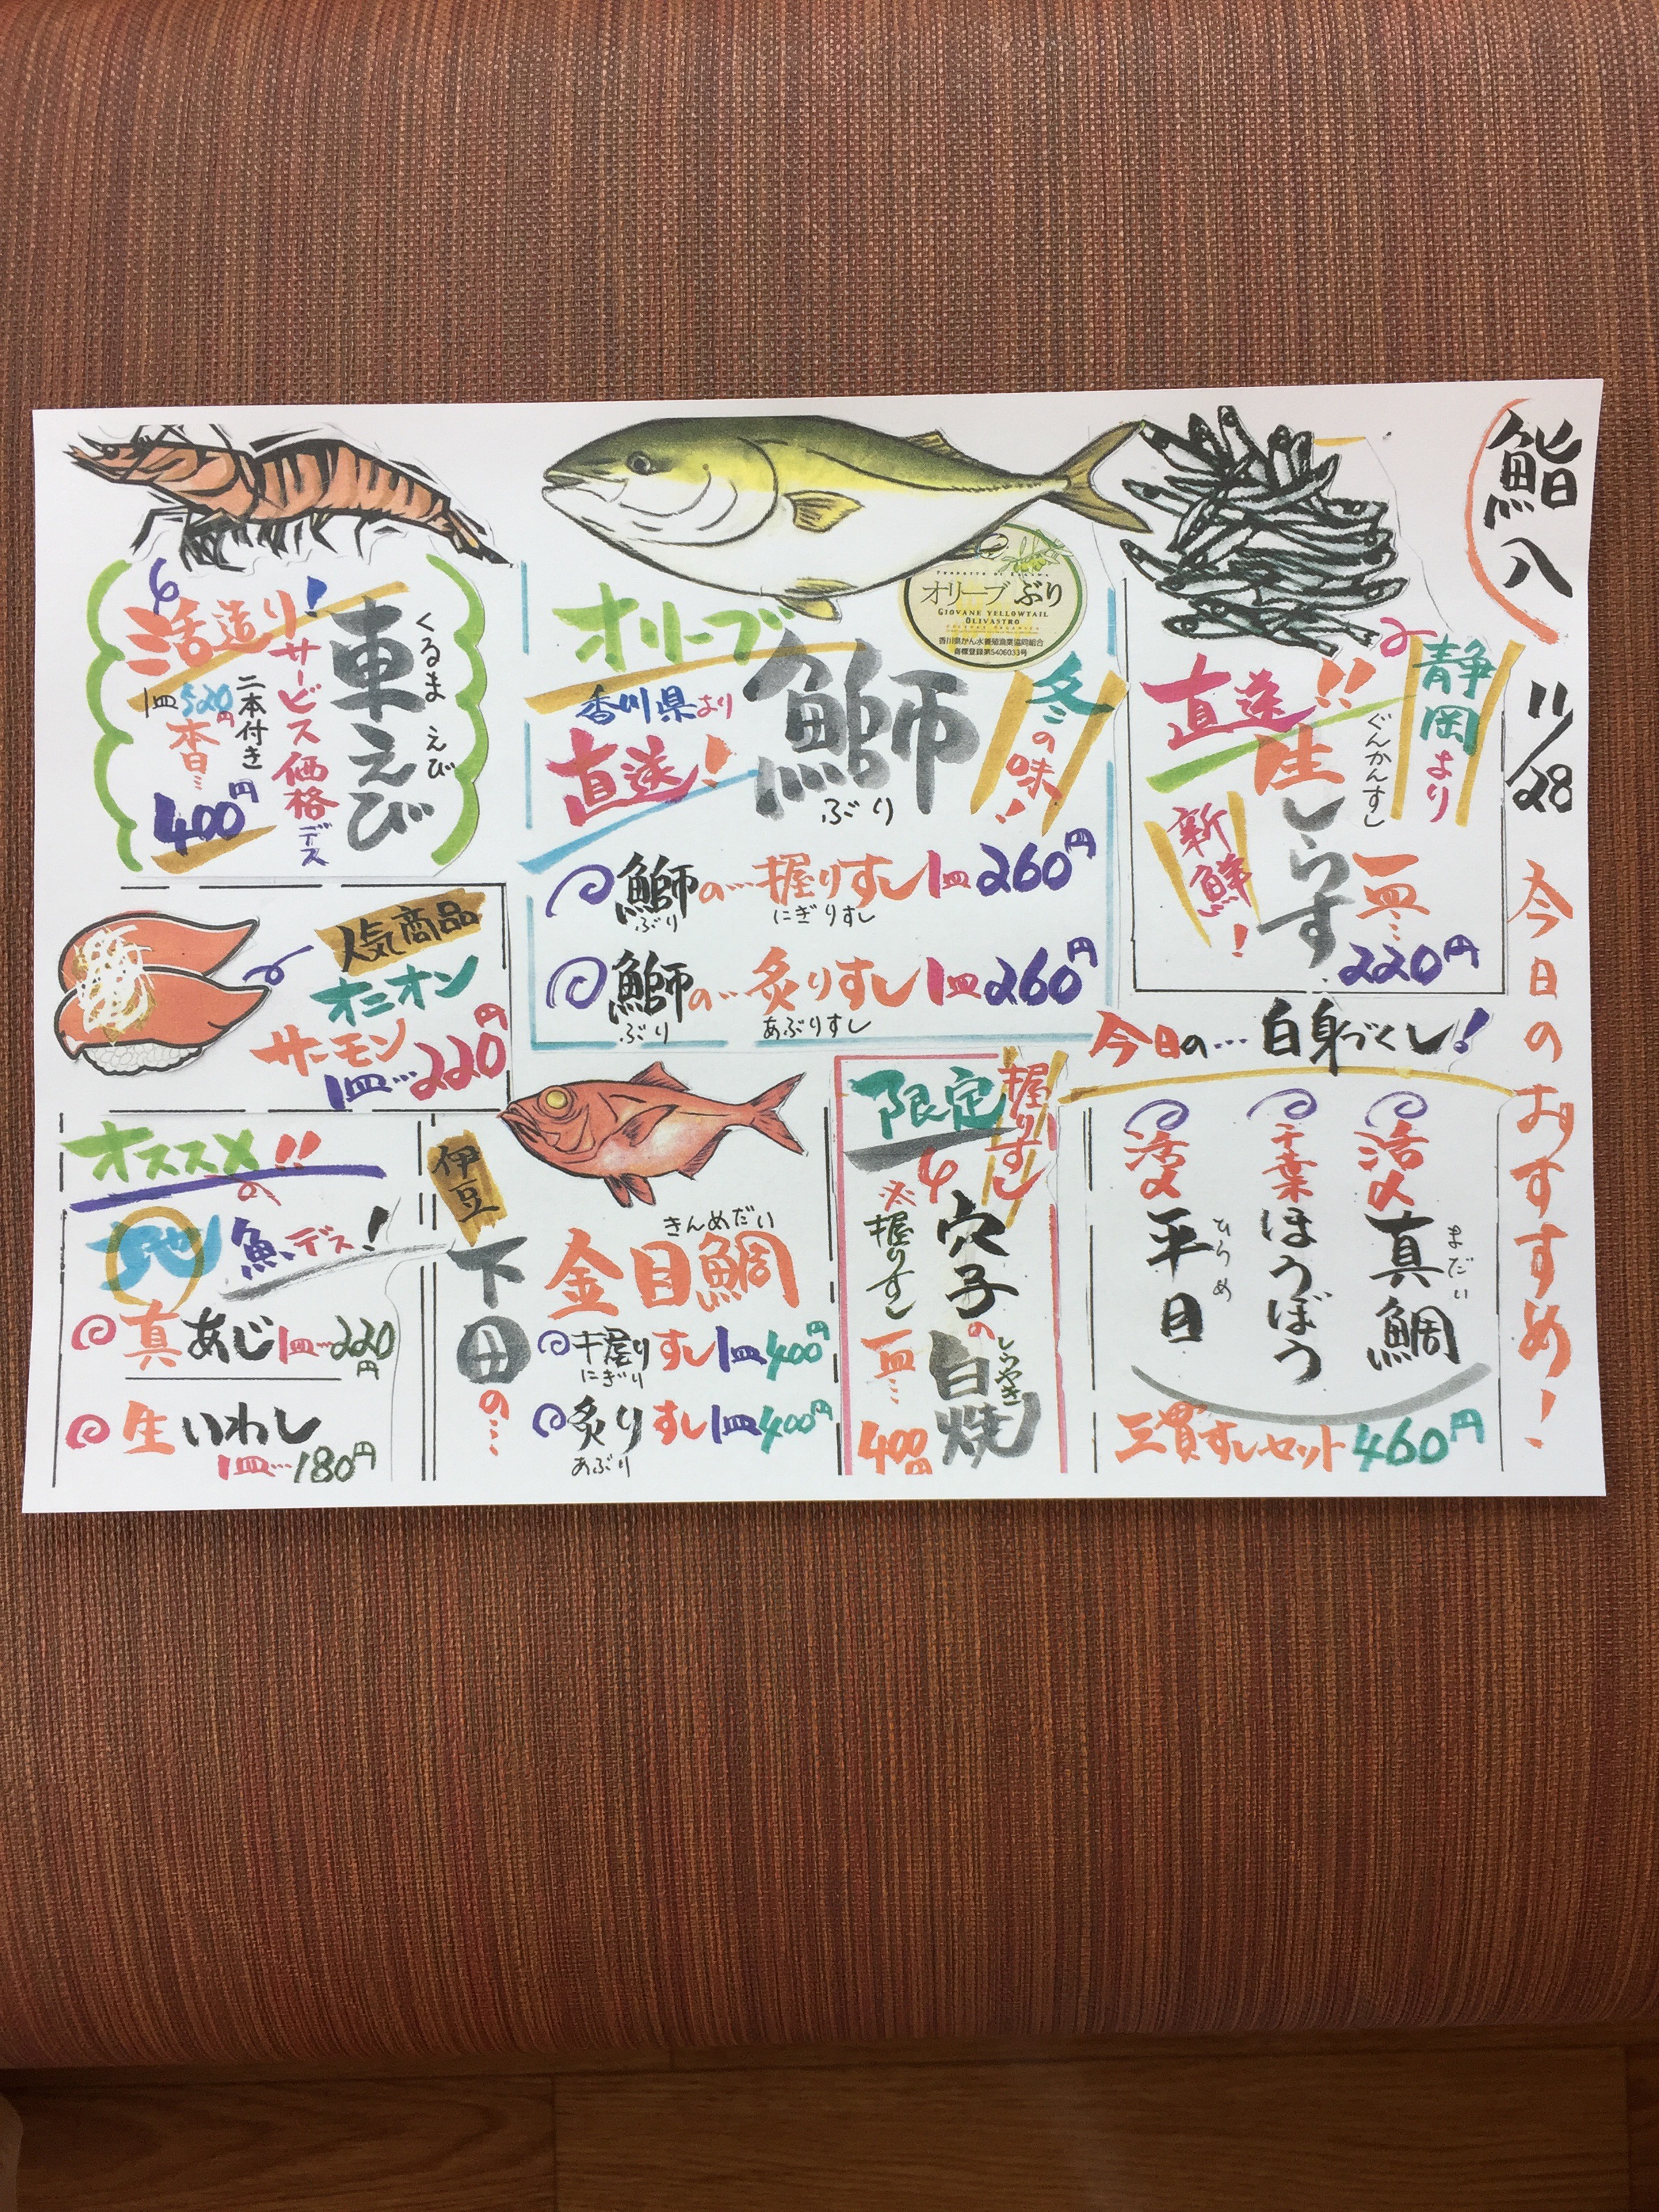 鮨八
11/28
今日のおすすめ!
静岡より
直送!!
ぐんかんすし
生しらす
新鮮!
一皿…
220円
オリーブぶり
GIOVANE YELLOWTAIL
OLIVASTRO
香川県かん水養殖漁業協同組合
商標登録第5406033号
冬の味!
オリーブ
鰤
ぶり
香川県より
直送!
鰤の…握りすし1皿260円
ぶり にぎりすし
鰤の…炙りすし1皿260円
ぶり あぶりすし
くるま えび
車えび
活造り!
サービス価格デス
二本付き
1皿520円
400円
人気商品
オニオン
サーモン
1皿…220円
今日の…白身づくし!
活〆真鯛
まだい
千葉ほうぼう
活〆平目
ひらめ
三貫すしセット460円
限定
握りすし
穴子の白焼
しらやき
※握りすし
一皿…
400円
伊豆
下田の…
きんめだい
金目鯛
握りすし1皿400円
にぎり
炙りすし1皿400円
あぶり
オススメ!!の
地魚デス!
真あじ1皿…220円
生いわし
1皿…180円